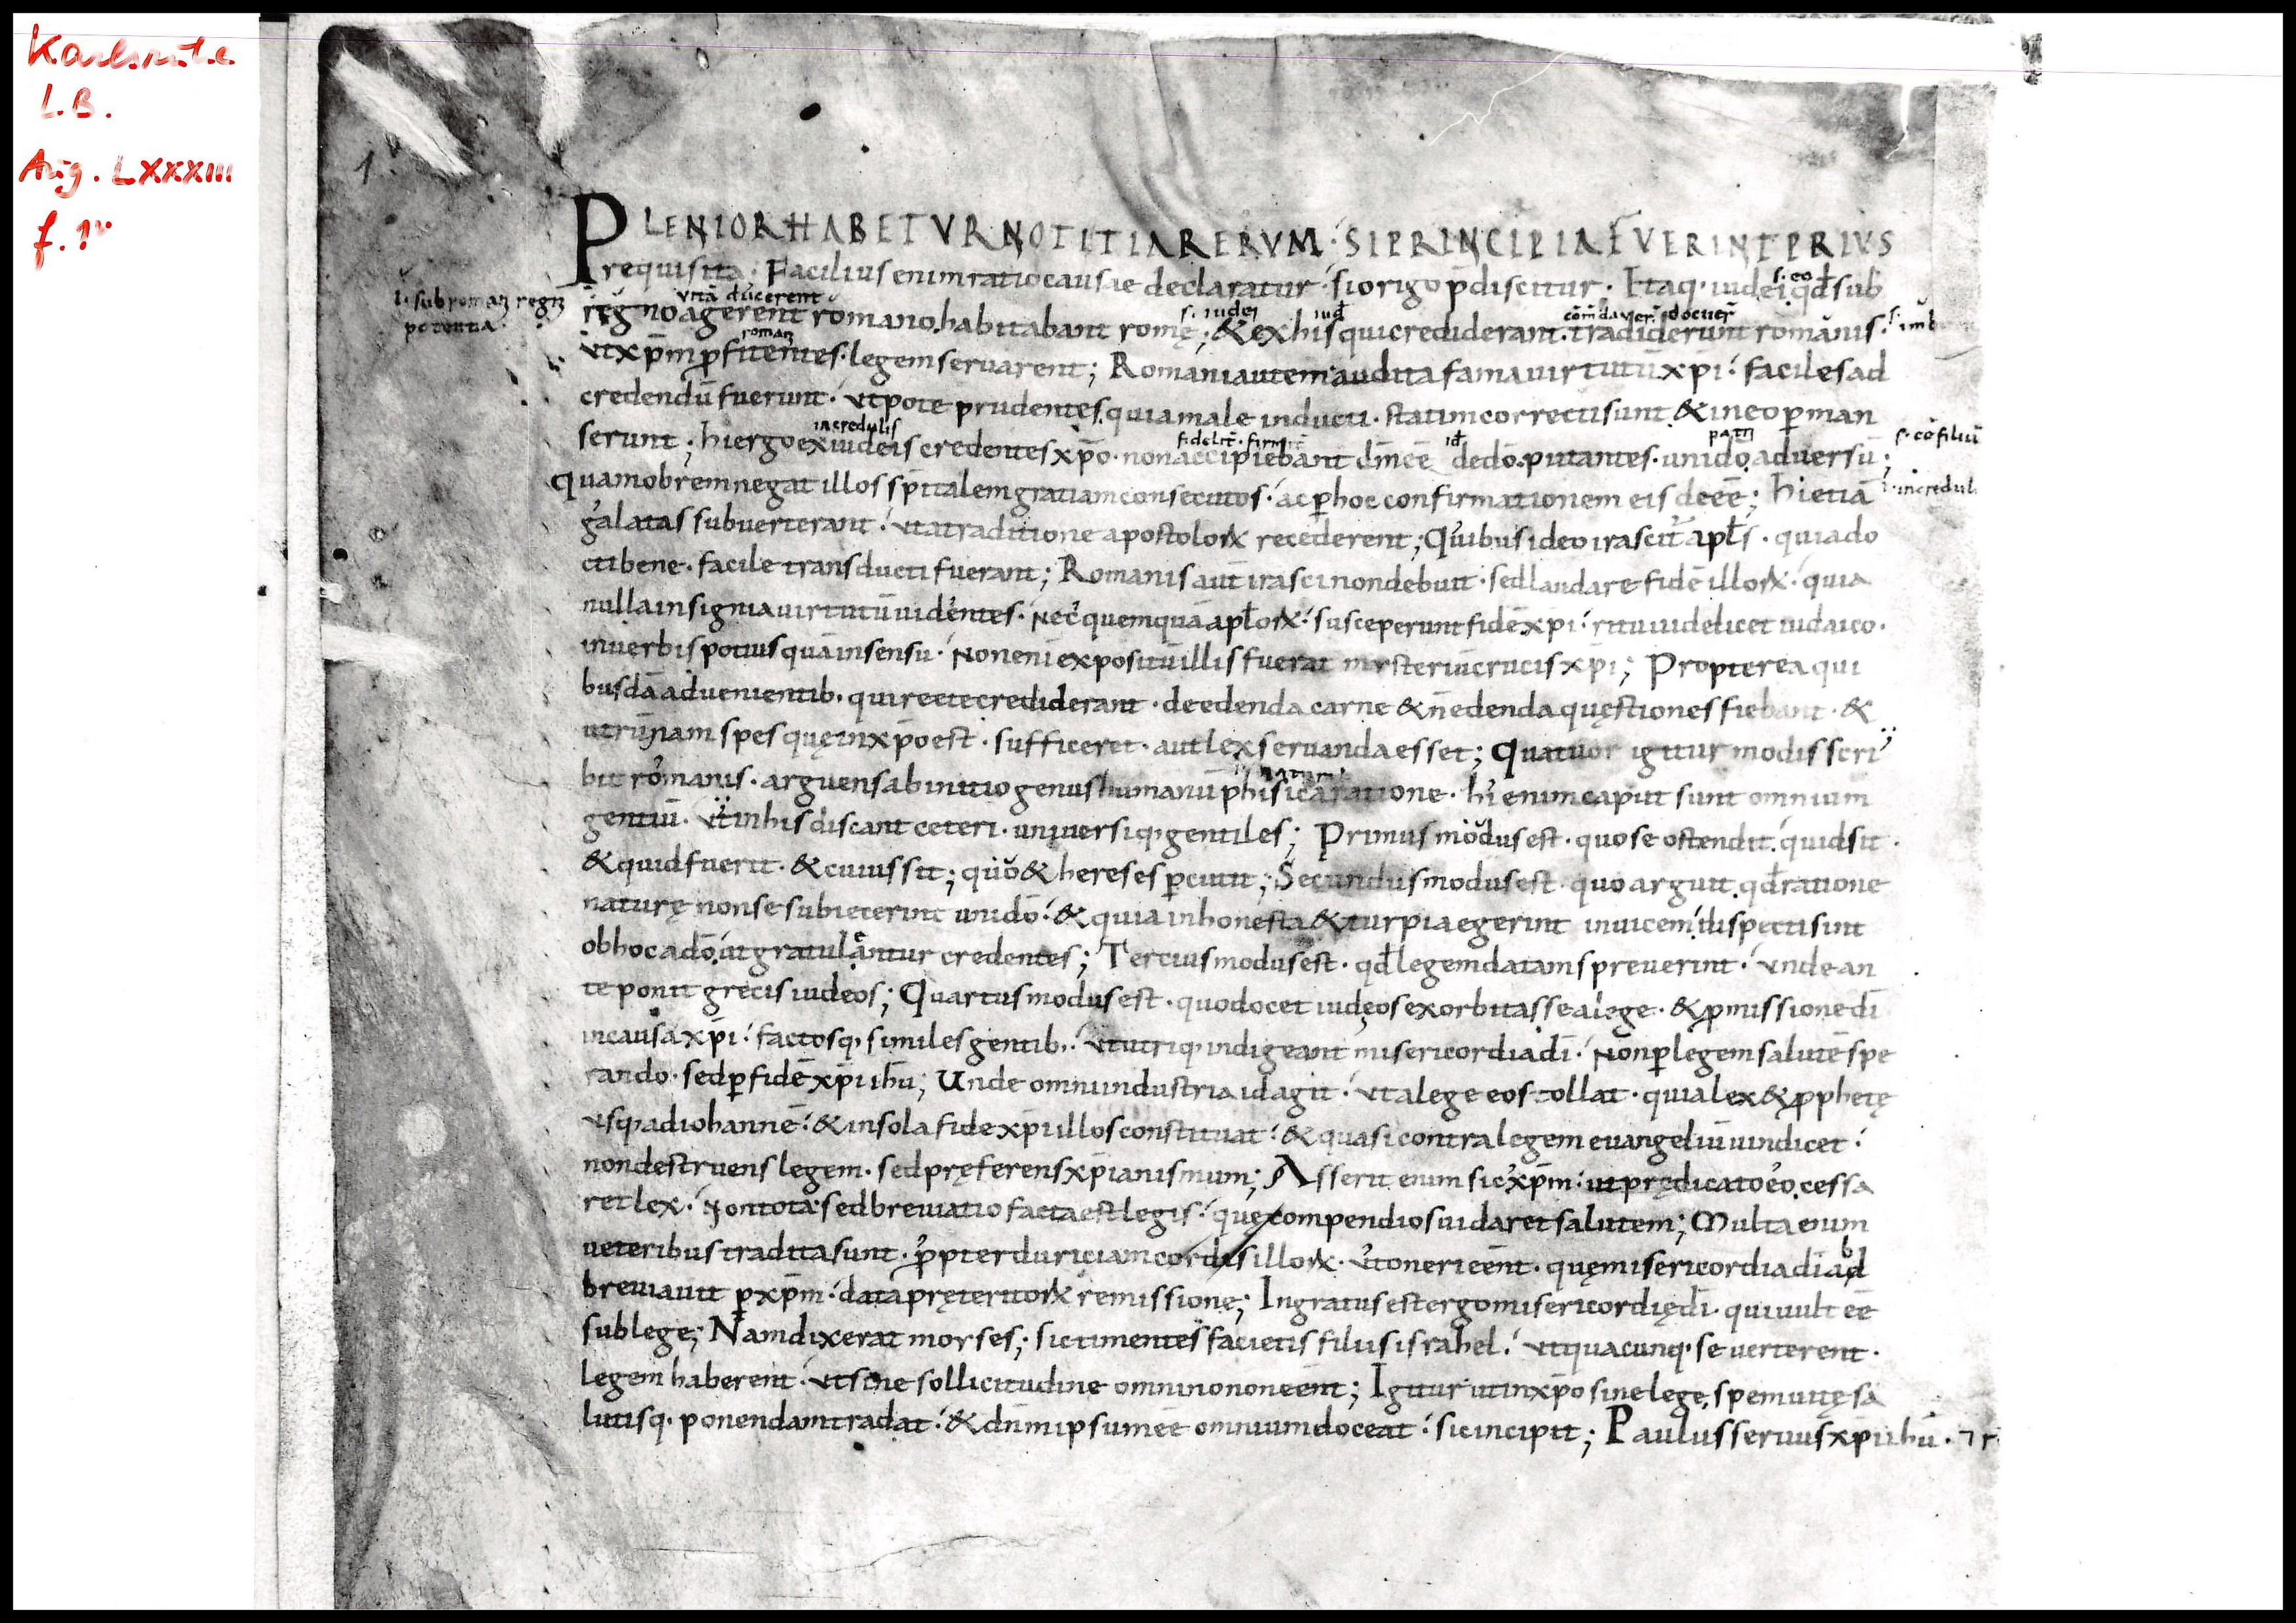 Karlsruhe
L.B.
Aug. LXXXIII
f. 1v
1
PLENIOR HABETVR NOTITIA RERVM· SI PRINCIPIA FVERINT PRIVS
requisita· Facilius enim ratio causae declaratur· si origo p̄discitur· Itaq· iudei qđ sub
s· eo
vitā ducerent
ł· sub romanꝫ regn
potentia·
regno agerent romano habitabant romę; & ex his qui crediderant· tradiderunt romanis·
s· iudei
iuđ
cōmdaver̄ docuer̄
romanꝫ
vt xp̄m ꝓfitentes· legem seruarent; Romani autem audita fama uirtutū xp̄i· faciles ad
credendū fuerunt· vt pote prudentes, quia male inducti· statim correcti sunt & in eo ꝑman
serunt; hi ergo ex iudeis credentes xp̄o· non accipiebant dm̄ ēē de dō· putantes· uni dō aduersū;
incredulis
fidelit̄· firmit̄
patri
s· cōfiliū
quam obrem negat illos sp̄italem gratiam consecutos· ac ꝑ hoc confirmationem eis deēē; hi etiā
ł· incredul
galatas subuerterant· vt a traditione apostoloꝝ recederent; Quibus ideo irascit̄ apłs· quia do
cti bene· facile transducti fuerant; Romanis aūt irasci non debuit· sed laudare fidē illoꝝ· quia
nulla insignia uirtutū uidentes· nec quemquā apłoꝝ· susceperunt fidē xp̄i· ritu uidelicet iudaico·
in uerbis potius quā in sensu· Non enī expositū illis fuerat mysteriū crucis xp̄i; Propterea qui
busdā aduenientib· qui recte crediderant· de edenda carne & n̄ edenda quęstiones fiebant· &
utrū nam spes quę in xp̄o est· sufficeret· aut lex seruanda esset; Quatuor igitur modis scri
bit romanis· arguens ab initio genus humanū phisica ratione· hi enim caput sunt omnium
gentiū· vt in his discant ceteri· uniuersiq· gentiles; Primus modus est· quo se ostendit· quid sit·
& quid fuerit· & cuius sit; quo & hereses ꝑcutit; Secundus modus est· quo arguit qđ ratione
naturę non se subiecerint uni dō· & quia inhonesta & turpia egerint inuicem dispecti sint
ob hoc a dō, ut gratulentur credentes; Tercius modus est· qđ legem datam spreuerint· vnde an
te ponit grecis iudeos; Quartus modus est· quo docet iudęos exorbitasse a lege· & ꝓmissione dī
in causa xp̄i· factosq· similes gentib·· vt utriq· indigeant misericordia dī· Non ꝑ legem salutē spe
rando· sed ꝑ fidē xp̄i ih̄u; Unde omni industria id agit· vt a lege eos tollat· quia lex & ꝓphetę
vsq· ad iohannē· & in sola fide xp̄i illos constituat· & quasi contra legem euangeliū uindicet·
non destruens legem· sed pręferens xp̄ianismum; Asserit enim sic xp̄m· ut prędicato eo, cessa
ret lex· Non tota· sed breuiatio facta est legis· quę compendio sui daret salutem; Multa enim
ueteribus tradita sunt· ꝓpter duriciam cordis illoꝝ· vt oneri eēnt· quę misericordia dī ad
b
breuiauit ꝑ xp̄m· data pręteritoꝝ remissione; Ingratus est ergo misericordię dī· qui uult ēē
sub lege; Nam dixerat moyses; sic timentes facietis filiis israhel· vt quacunq· se uerterent·
legem haberent· vt sine sollicitudine omnino non eēnt; Igitur ut in xp̄o sine lege, spem uitę sa
lutisq· ponendam tradat· & dn̄m ipsum ēē omnium doceat· sic incipit; Paulus seruus xp̄i ih̄u·